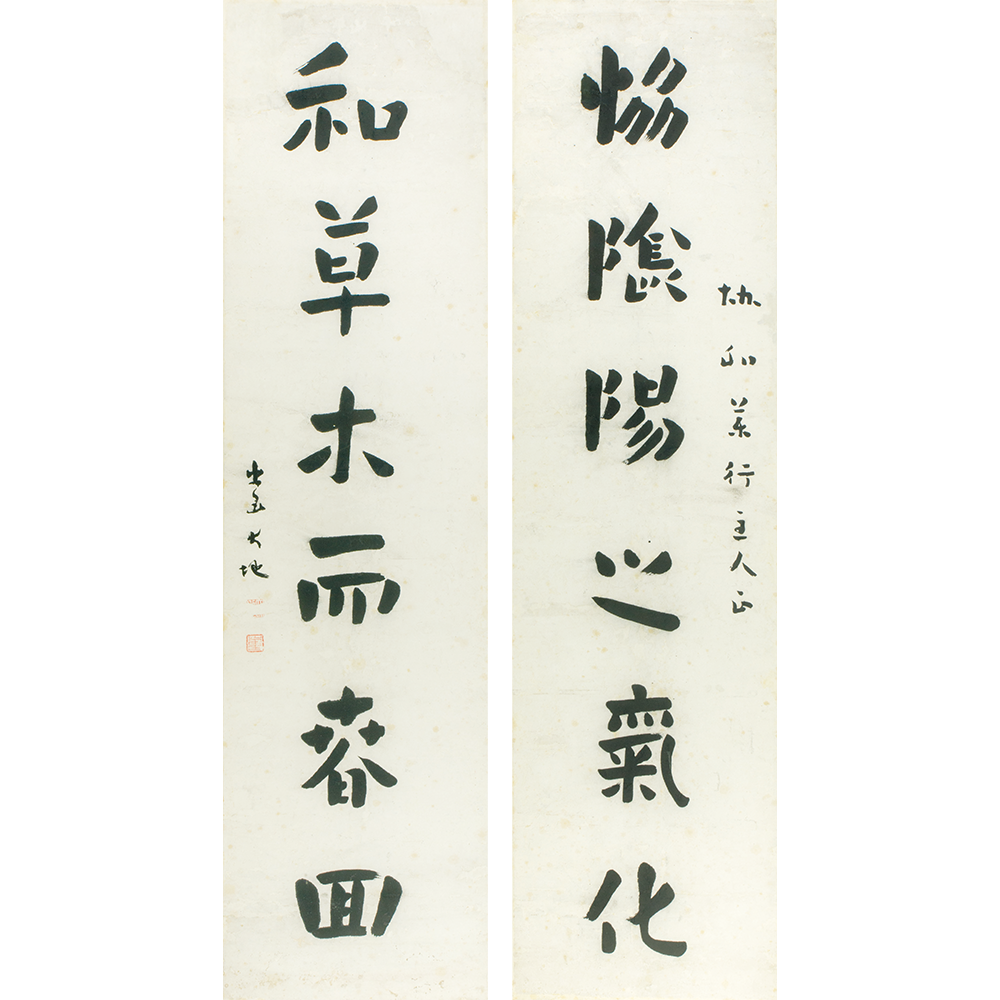 恊陰陽之氣化
協和藥行主人正
和草木而春囬
大地